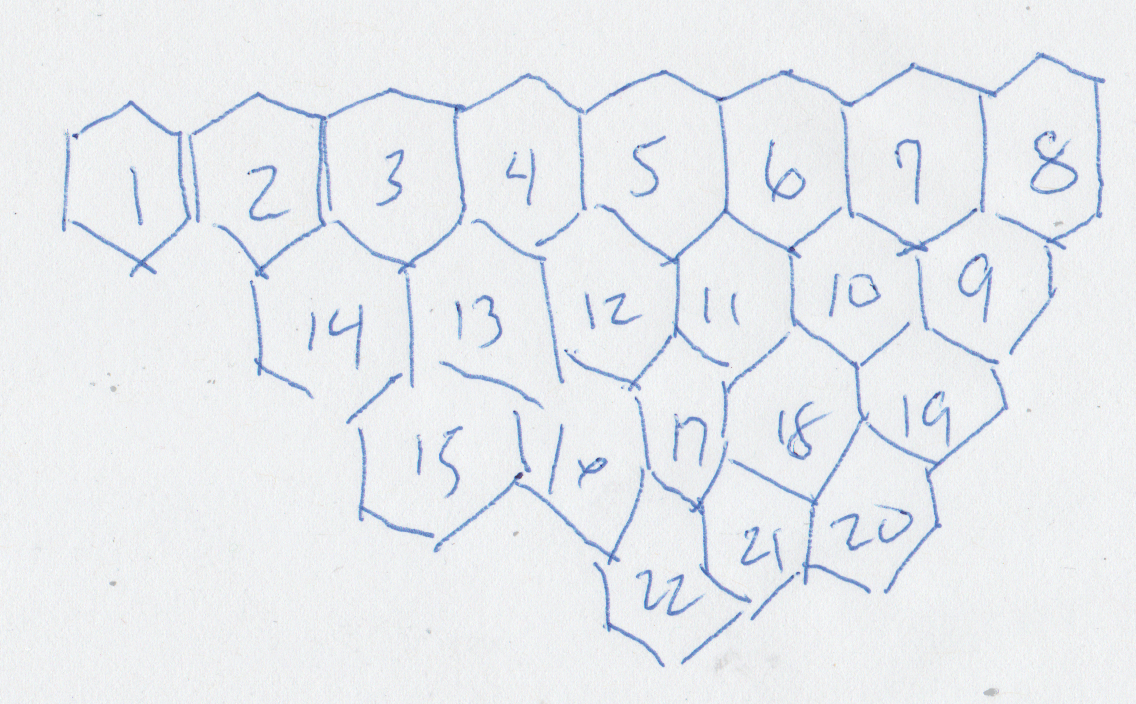 1 2 3 4 5 6 7 8
14 13 12 11 10 9
15 16 17 18 19
22 21 20